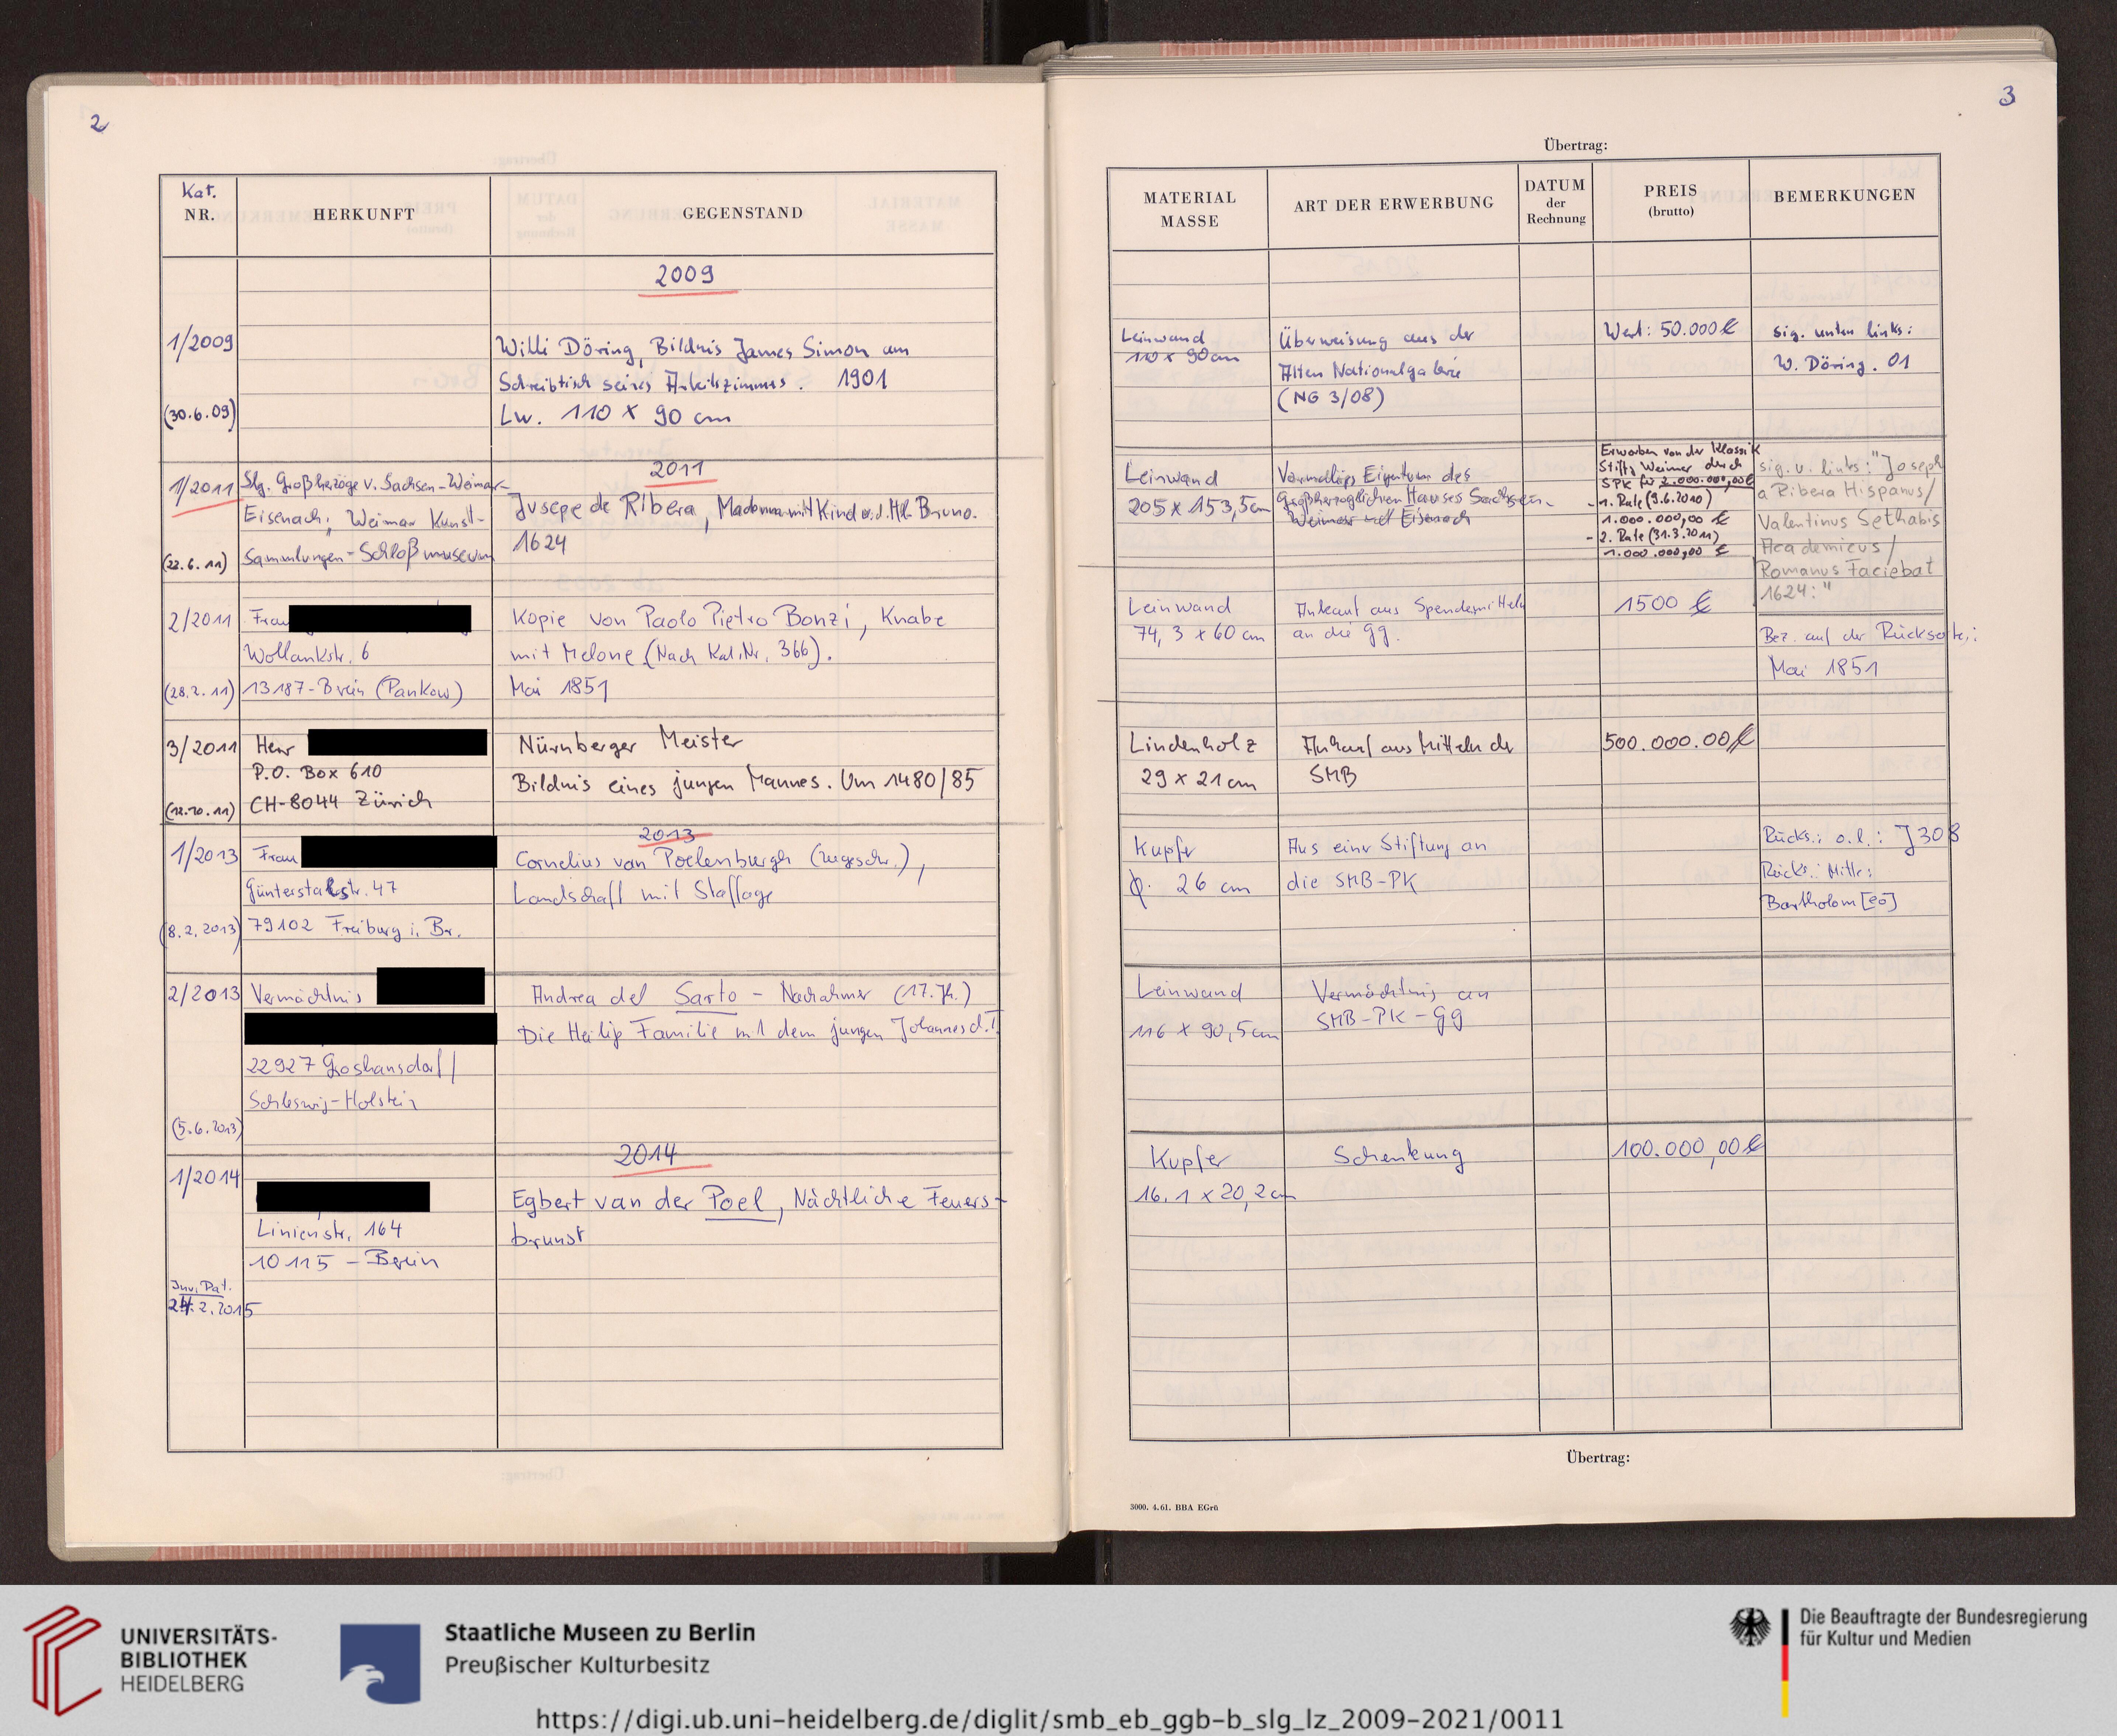 2
Kat.
NR.
HERKUNFT
GEGENSTAND
2009
1/2009
Willi Döring, Bildnis James Simon am
Schreibtisch seines Arbeitszimmers. 1901
(30.6.09)
Lw. 110 x 90 cm
2011
1/2011
Slg. Großherzöge v. Sachsen-Weimar-
Eisenach; Weimar Kunst-
Sammlungen-Schloßmuseum
(22.6.11)
Jusepe de Ribera, Madonna mit Kind u. d. Hl. Bruno.
1624
2/2011
Frau
Wollankstr. 6
(28.2.11)
13187-Brein (Pankow)
Kopie von Paolo Pietro Bonzi, Knabe
mit Melone (Nach Kat.Nr. 366).
Mai 1851
3/2011
Herr
P.O. Box 610
(12.10.11)
CH-8044 Zürich
Nürnberger Meister
Bildnis eines jungen Mannes. Um 1480/85
2013
1/2013
Frau
Günterstalstr. 47
(8.2.2013)
79102 Freiburg i. Br.
Cornelius van Poelenburgh (zugeschr.),
Landschaft mit Staffage
2/2013
Vermächtnis
22927 Groshansdorf/
Schleswig-Holstein
(5.6.2013)
Andrea del Sarto - Nachahmer (17. Jh.)
Die Heilige Familie mit dem jungen Johannes d. T.
2014
1/2014
Linienstr. 164
10115 - Berlin
Inv. Dat.
24.2.2015
Egbert van der Poel, Nächtliche Feuers-
brunst
3
Übertrag:
MATERIAL
MASSE
ART DER ERWERBUNG
DATUM
der
Rechnung
PREIS
(brutto)
BEMERKUNGEN
Leinwand
110 x 90 cm
Überweisung aus der
Alten Nationalgalerie
(NG 3/08)
Wert: 50.000 €
sig. unten links:
W. Döring. 01
Leinwand
205 x 153,5 cm
Vormaliges Eigentum des
Großherzoglichen Hauses Sachsen-
Weimar und Eisenach
Erworben von der Klassik
Stiftg Weimar durch
SPK für 2.000.000,00 €
- 1. Rate (9.6.2010)
1.000.000,00 €
- 2. Rate (31.3.2011)
1.000.000,00 €
sig. u. links: "Joseph
a Ribera Hispanus/
Valentinus Sethabis
Academicus/
Romanus Faciebat
1624:"
Leinwand
74,3 x 60 cm
Ankauf aus Spendenmitteln
an die Gg.
1500 €
Bez. auf der Rückseite:
Mai 1851
Lindenholz
29 x 21 cm
Ankauf aus Mitteln der
SMB
500.000.00 €
Kupfer
φ. 26 cm
Aus einer Stiftung an
die SMB-PK
Rücks.: o.l.: J308
Rücks.: Mitte:
Bartholom[eo]
Leinwand
116 x 90,5 cm
Vermächtnis an
SMB-PK-Gg
Kupfer
16.1 x 20,2 cm
Schenkung
100.000,00 €
Übertrag:
3000. 4.61. BBA EGrü
UNIVERSITÄTS-
BIBLIOTHEK
HEIDELBERG
Staatliche Museen zu Berlin
Preußischer Kulturbesitz
Die Beauftragte der Bundesregierung
für Kultur und Medien
https://digi.ub.uni-heidelberg.de/diglit/smb_eb_ggb-b_slg_lz_2009-2021/0011